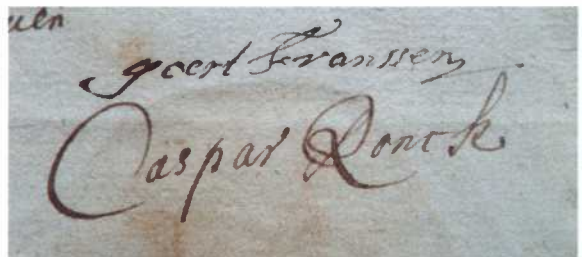 goert Franssen
Caspar Ronck